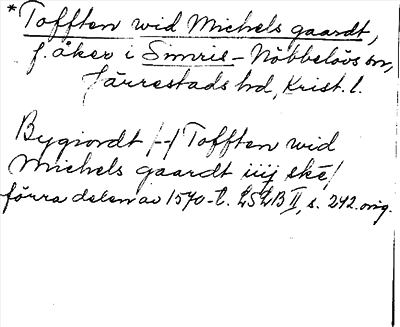 *Tofften wid Michels gaardt,
f. åker i Simris-Nöbbelövs sn,
Järrestads hd, Krist. l.
Bygiordt /-/ Tofften wid
Michels gaardt iiij skē/
förra delen av 1570-t. LSLB II, s. 242. orig.